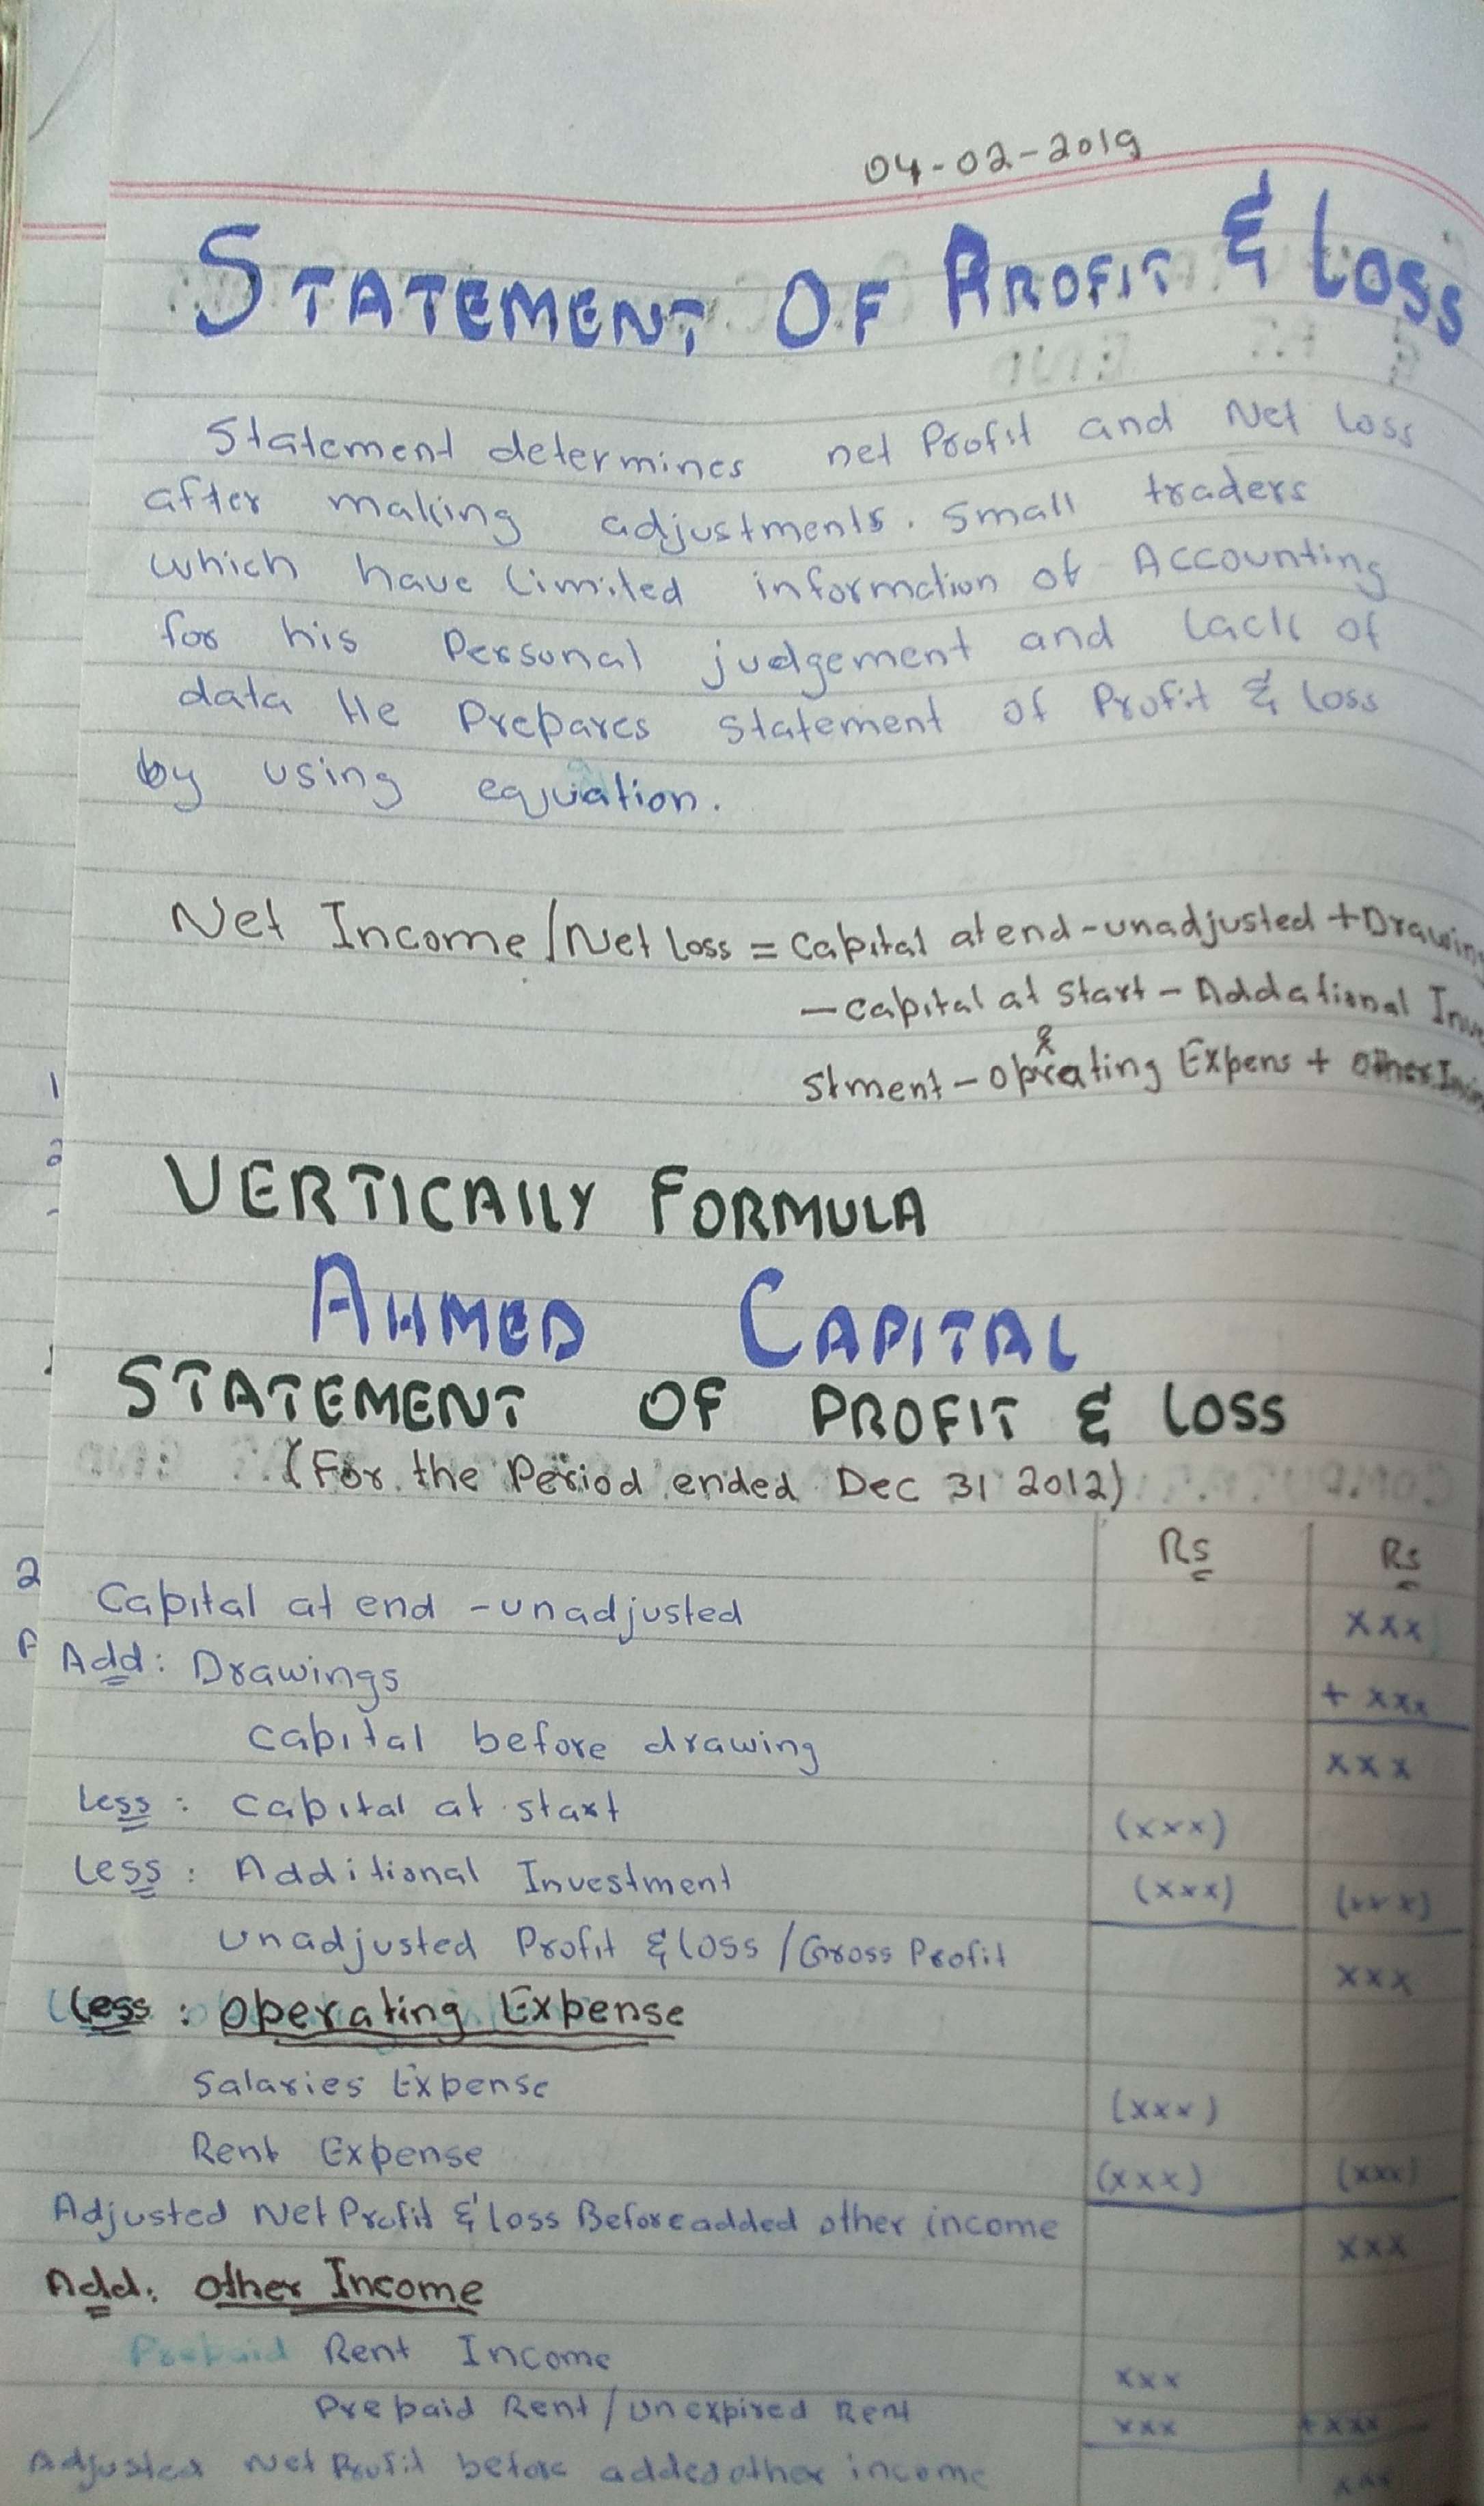 04-02-2019
STATEMENT OF PROFIT & LOSS
Statement determines net Profit and Net loss
after making adjustments. Small traders
which have limited information of Accounting
for his Personal judgement and lack of
data He Prepares Statement of Profit & loss
by using equation.
Net Income/Net loss = Capital at end-unadjusted + Drawin
- capital at start - Addational Inve
stment - oprating Expens + other
e
1
2
VERTICAllY FORMULA
AHMED CAPITAL
STATEMENT OF PROFIT & LOSS
(For the Period ended Dec 31 2012)
Rs Rs
2
Capital at end -unadjusted xxx
Add: Drawings + xxx
Capital before drawing xxx
Less: Capital at start (xxx)
Less: Additional Investment (xxx) (xxx)
unadjusted Profit & loss / Gross Profit xxx
Less: Operating Expense
Salaries Expense (xxx)
Rent Expense (xxx) (xxx)
Adjusted Net Profit & loss Before added other income xxx
Add: other Income
Prepaid Rent Income xxx
Prepaid Rent / unexpired Rent xxx +xxx
Adjusted Net Profit before added other income xxx